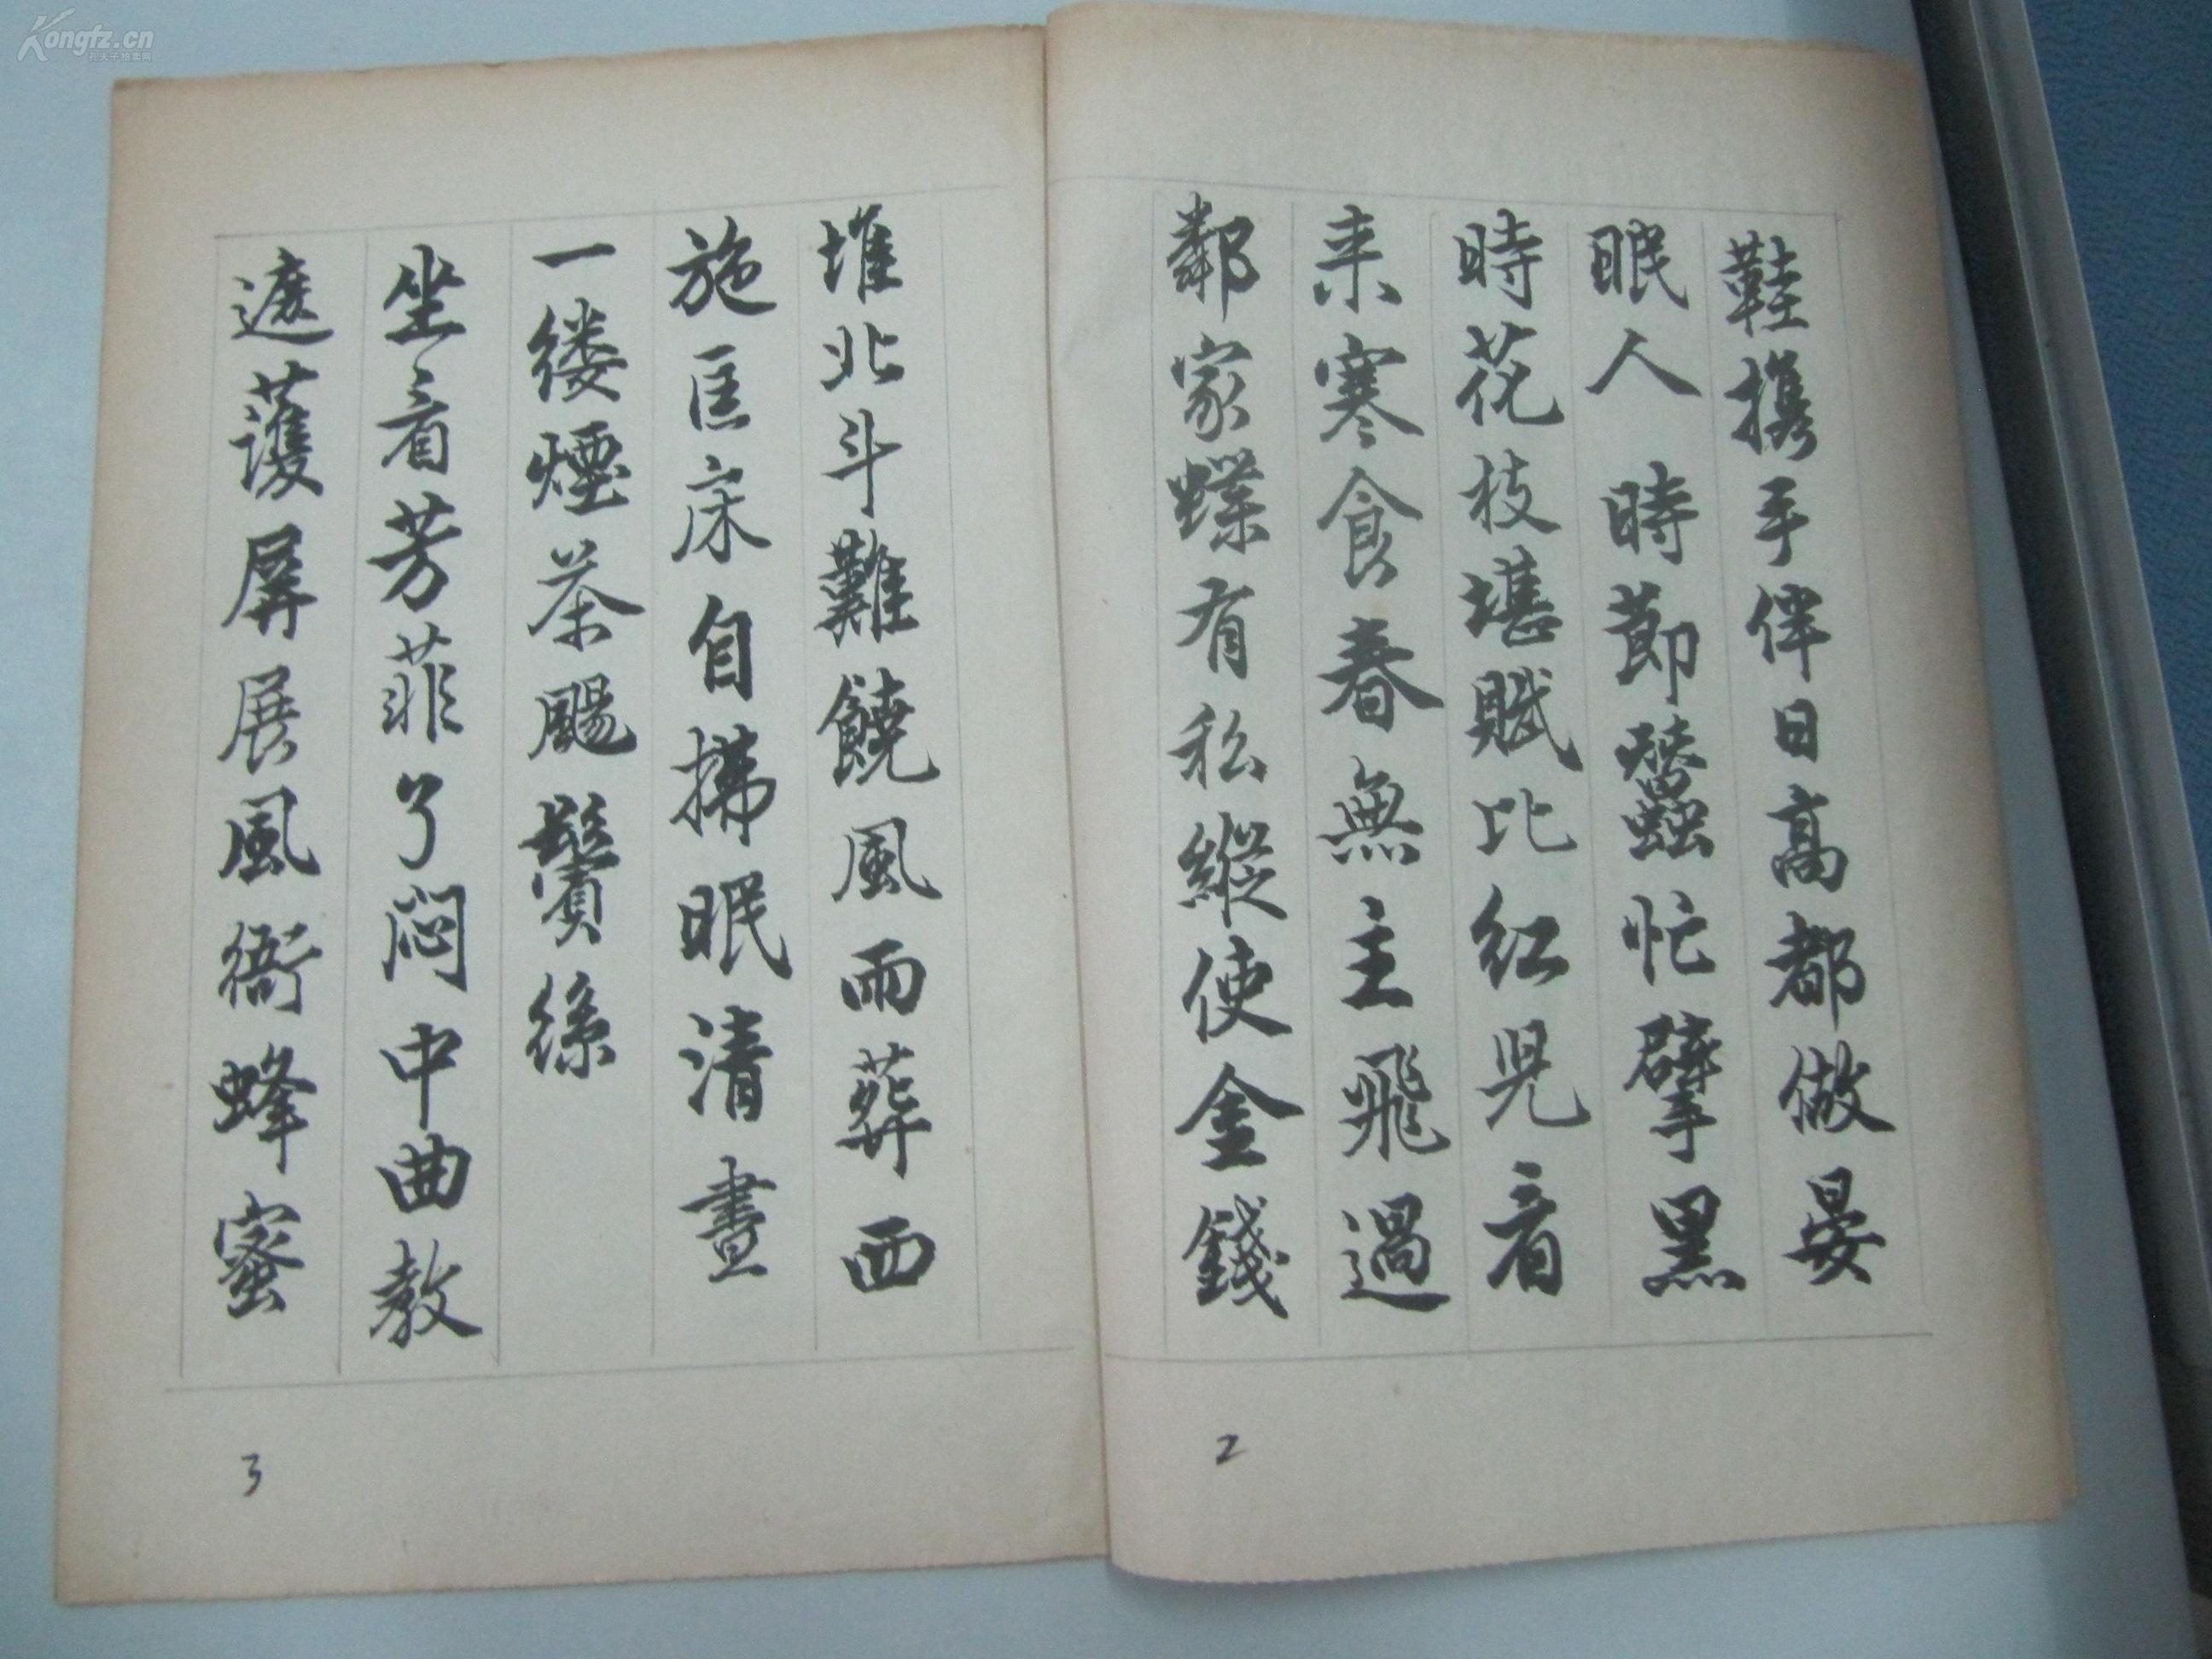 鞋攜手伴日高都做晏
眠人 時節蠶忙擘黑
時花枝堪賦比紅兒看
来寒食春無主飛過
鄰家蝶有私縱使金錢
2
堆北斗難饒風雨葬西
施匡床自拂眠清晝
一縷煙茶颺鬢絲
坐看芳菲了悶中曲教
遮護屏展風衙蜂蜜
3
Kongfz.cn